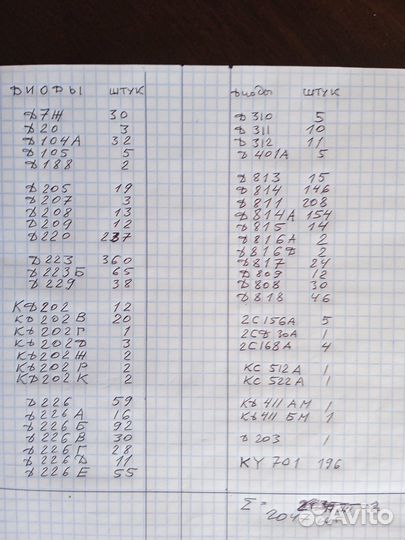 ДИОДЫ ШТУК
Д7Ж 30
Д20 3
Д104А 32
Д105 5
Д188 2
Д205 19
Д207 3
Д208 13
Д209 12
Д220 237
Д223 360
Д223Б 65
Д229 38
КД202 12
КД202В 20
КД202Г 1
КД202Д 3
КД202Ж 2
КД202Р 2
КД202К 2
Д226 59
Д226А 16
Д226Б 92
Д226В 30
Д226Г 28
Д226Д 11
Д226Е 55
Диоды ШТУК
Д310 5
Д311 10
Д312 11
Д401А 5
Д813 15
Д814 146
Д811 208
Д814А 154
Д815 14
Д816А 2
Д816Б 2
Д817 24
Д809 12
Д808 30
Д818 46
2С156А 5
2СД30А 1
2С168А 4
КС512А 1
КС522А 1
КД411АМ 1
КД411БМ 1
Д203 1
КУ701 196
Σ =
2047 шт
Avito